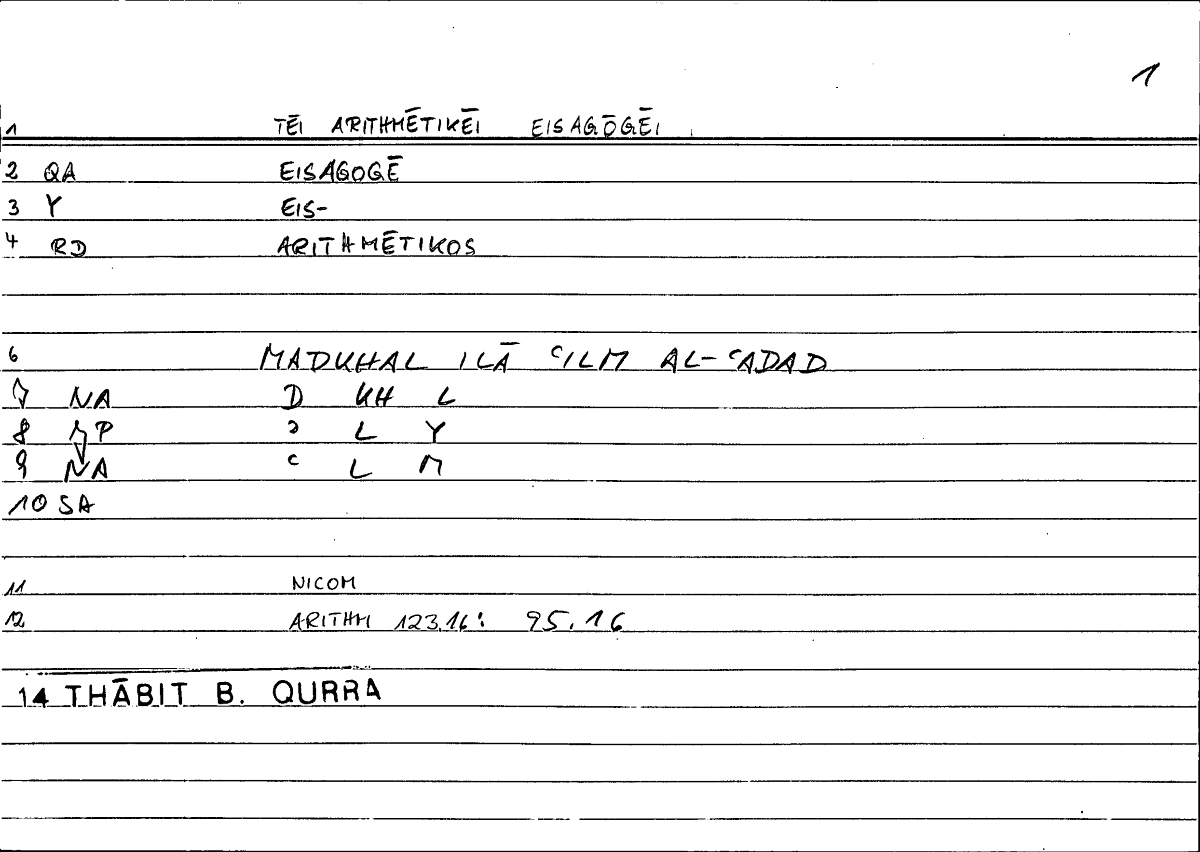 1
1 TĒI ARITHMĒTIKĒI EISAGŌGĒI
2 QA EISAGOGĒ
3 Y EIS-
4 RD ARITHMĒTIKOS
6 MADKHAL ILĀ ʿILM AL-ʿADAD
7 NA D KH L
8 NP ʾ L Y
9 NA ʿ L M
10 SA
11 NICOM
12 ARITHM 123.16: 95.16
14 THĀBIT B. QURRA